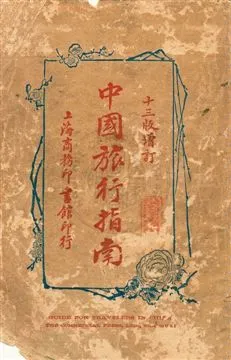 十三版增訂
中國旅行指南
上海商務印書館印行
GUIDE FOR TRAVELERS IN CHINA
THE COMMERCIAL PRESS, LTD.,